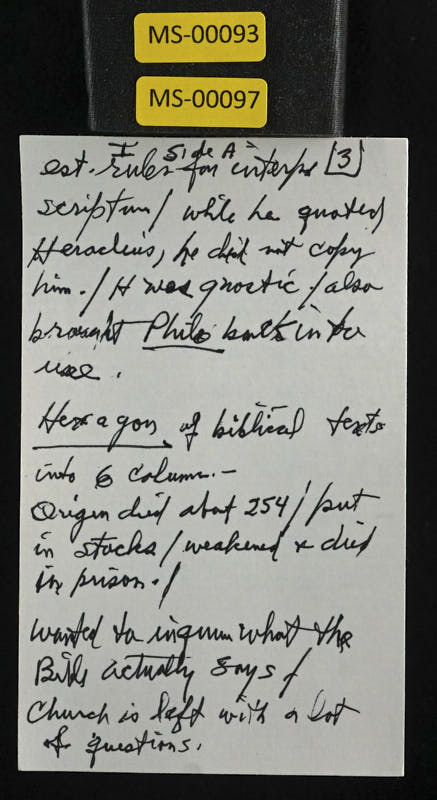 MS-00093
MS-00097
I Side A
est. rules for interp [3]
scriptur / while he quoted
Heracleus, he did not copy
him. / H was gnostic / also
brought Philo back into
use.
Hexagon of biblical texts
into 6 column. -
Origen died about 254 / put
in stocks / weakened & died
in prison. /
wanted to what the
Bible actually says /
Church is left with a lot
of questions.